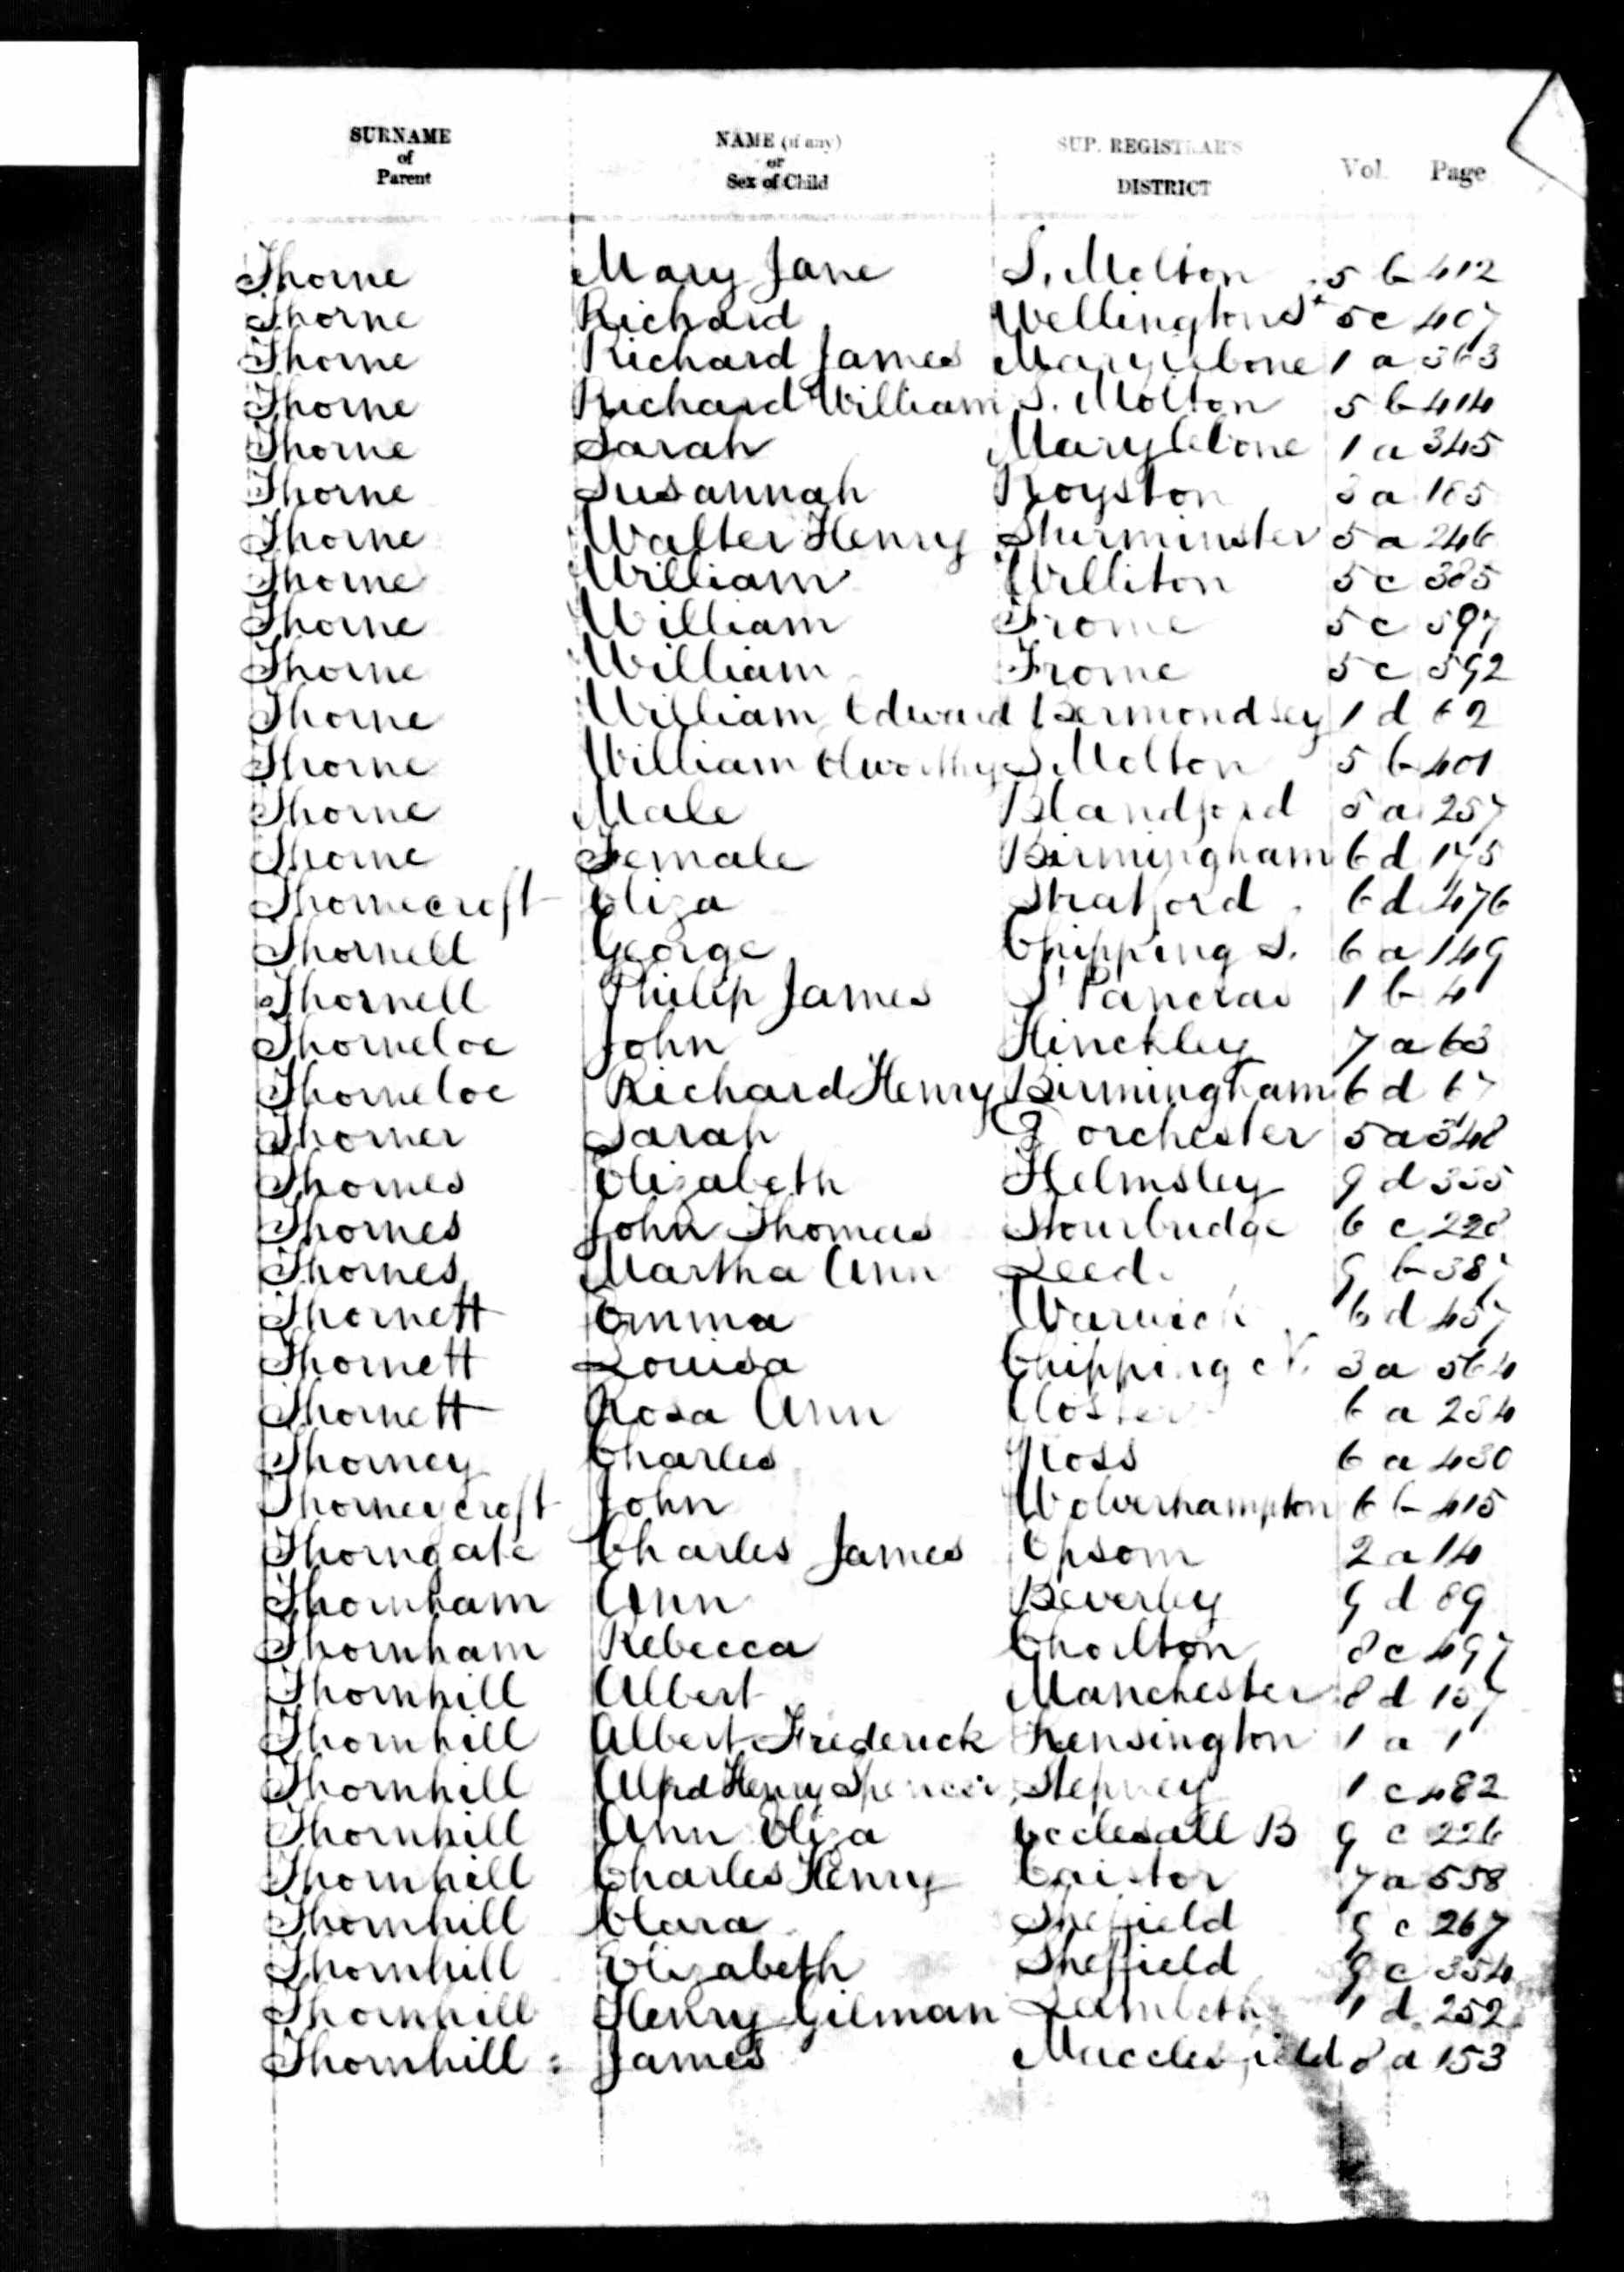 SURNAME of Parent NAME (if any) or Sex of Child SUP. REGISTRAR'S DISTRICT Vol. Page
Thorne Mary Jane S. Molton 5 b 412
Thorne Richard Wellington St 5 c 407
Thorne Richard James Marylebone 1 a 363
Thorne Richard William S. Molton 5 b 414
Thorne Sarah Marylebone 1 a 345
Thorne Susannah Royston 3 a 165
Thorne Walter Henry Sturminster 5 a 246
Thorne William Williton 5 c 385
Thorne William Frome 5 c 597
Thorne William Frome 5 c 592
Thorne William Edward Bermondsey 1 d 62
Thorne William Elworthy S Molton 5 b 401
Thorne Male Blandford 5 a 257
Thorne Female Birmingham 6 d 175
Thornecroft Eliza Stratford 6 d 476
Thornell George Chipping S. 6 a 149
Thornell Philip James S Pancras 1 b 4
Thorneloe John Hinckley 7 a 63
Thorneloe Richard Henry Birmingham 6 d 67
Thorner Sarah Dorchester 5 a 348
Thornes Elizabeth Helmsley 9 d 335
Thornes John Thomas Stourbridge 6 c 228
Thornes Martha Ann Leeds 9 b 387
Thornett Emma Warwick 6 d 457
Thornett Louisa Chipping N. 3 a 564
Thornett Rosa Ann Gloster 6 a 234
Thorney Charles Ross 6 a 430
Thorneycroft John Wolverhampton 6 b 415
Thorngate Charles James Epsom 2 a 14
Thornham Ann Beverley 9 d 89
Thornham Rebecca Chorlton 8 c 497
Thornhill Albert Manchester 8 d 157
Thornhill Albert Frederick Kensington 1 a 1
Thornhill Alfrd Henry Spencer Stepney 1 c 482
Thornhill Ann Eliza Ecclesall B 9 c 226
Thornhill Charles Henry Caistor 7 a 558
Thornhill Clara Sheffield 9 c 267
Thornhill Elizabeth Sheffield 9 c 354
Thornhill Henry Gilman Lambeth 1 d 252
Thornhill James Macclesfield 8 a 153